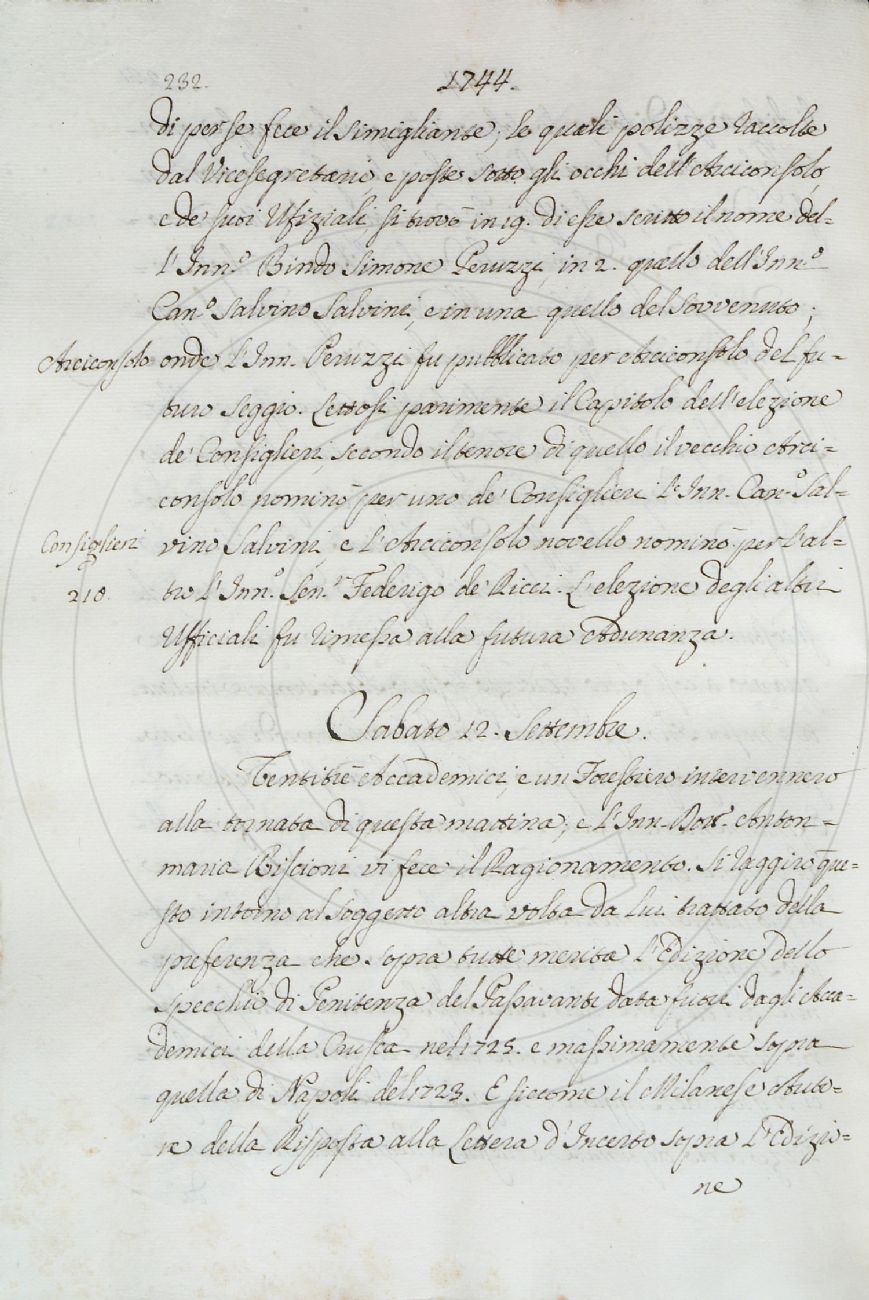 232.
1744.
di per se fece il simigliante; le quali polizze raccolte
dal Vicesegretario, e poste sotto gli occhi dell'Arciconsolo,
e de' suoi Ufiziali, si trovò in 19. di esse scritto il nome del-
l'Inn.º Bindo Simone Peruzzi, in 2. quello dell'Inn.º
Can.º Salvino Salvini, e in una quello del Sovvenuto;
Arciconsolo onde l'Inn. Peruzzi fu pubblicato per Arciconsolo del fu-
turo Seggio. Lettosi parimente il Capitolo dell'elezione
de' Consiglieri, secondo il tenore di quello il vecchio Arci-
consolo nominò per uno de' Consiglieri l'Inn. Can.º Sal-
Consiglieri vino Salvini, e l'Arciconsolo novello nominò per l'al-
210. tro l'Inn.º Sen.r Federigo de' Ricci. L'elezione degli altri
Ufficiali fu rimessa alla futura Adunanza.
Sabato 12. Settembre.
Ventitrè Accademici, e un Forestiero intervennero
alla tornata di questa mattina, e l'Inn. Dott. Anton-
maria Biscioni vi fece il Ragionamento. Si raggirò que-
sto intorno al soggetto altra volta da lui trattato della
preferenza che sopra tutte merita l'Edizione dello
specchio di Penitenza del Passavanti data fuori dagli Acca-
demici della Crusca nel 1725. e massimamente sopra
quella di Napoli del 1723. E siccome il Milanese Auto-
re della Risposta alla Lettera d'Incerto sopra l'Edizio-
ne